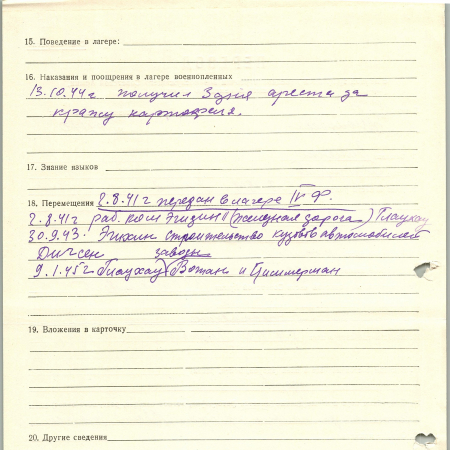 15. Поведение в лагере:
16. Наказания и поощрения в лагере военнопленных
13.10.44г получил 3 дня ареста за
кражу картофеля.
17. Знание языков
18. Перемещения 2.8.41г передан в лагерь IV Ф.
2.8.41г раб. ком (железная дорога) Глаухау
30.9.43. строительство кузовов автомобилей
заводы
9.1.45г Глаухау и Циммерман
19. Вложения в карточку
20. Другие сведения